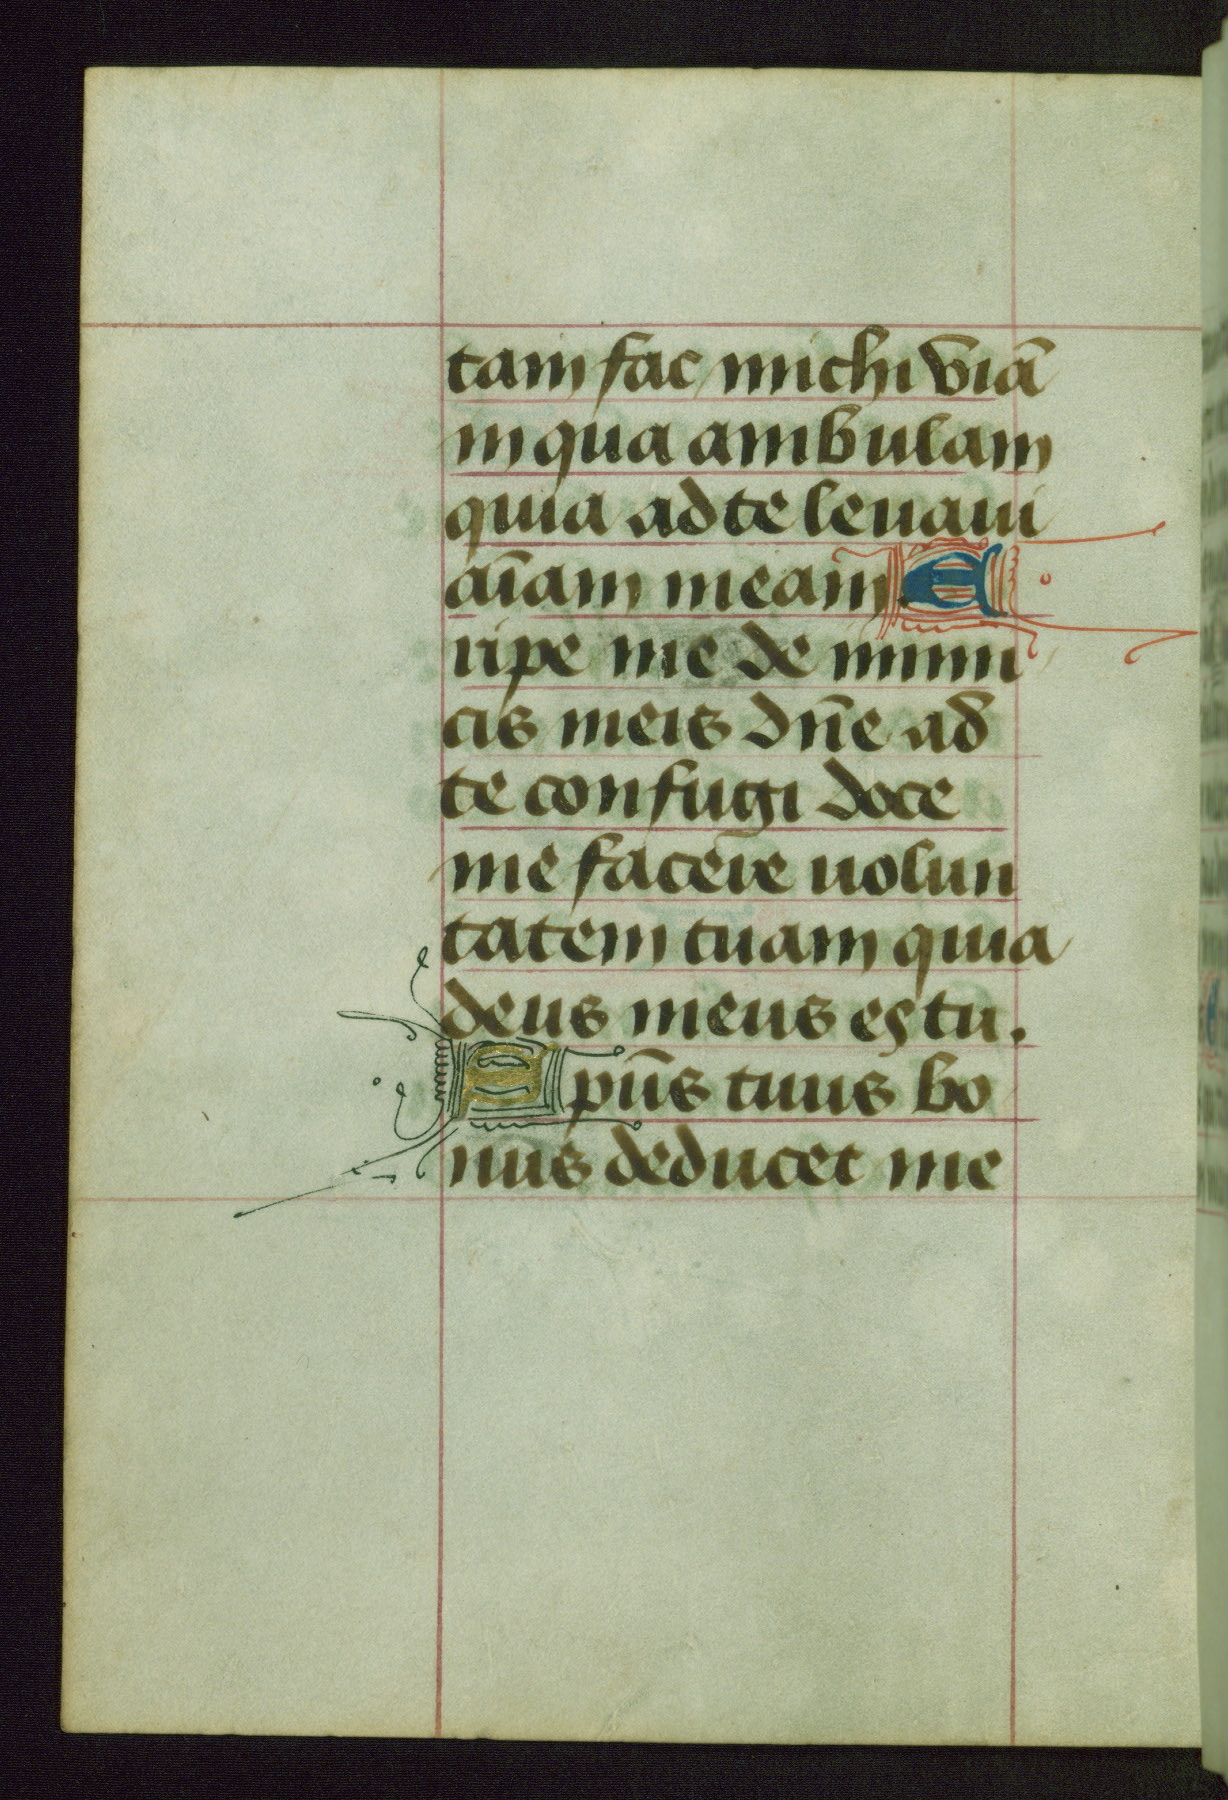 tam fac michi viā
in qua ambulam
quia ad te leuaui
aīam meam E
ripe me de inimi
cis meis dn̄e ad
te confugi doce
me facere uolun
tatem tuam quia
deus meus es tu.
S pūs tuus bo
nus deducet me